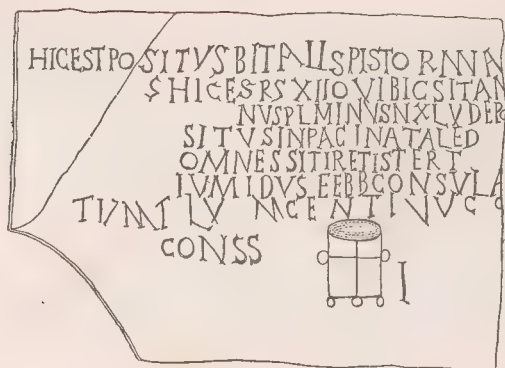 HICESTPOSITVSBITALISPISTORMIA
SHICESRSXIIOVIBICSITAN
NVSPLMINVSNXLVDEPO
SITVSINPACINATALED
OMNESSITIRETISTERT
IVMIDVSFEBBCONSVLA
TVMFLVINCENTIVVCC
CONSS